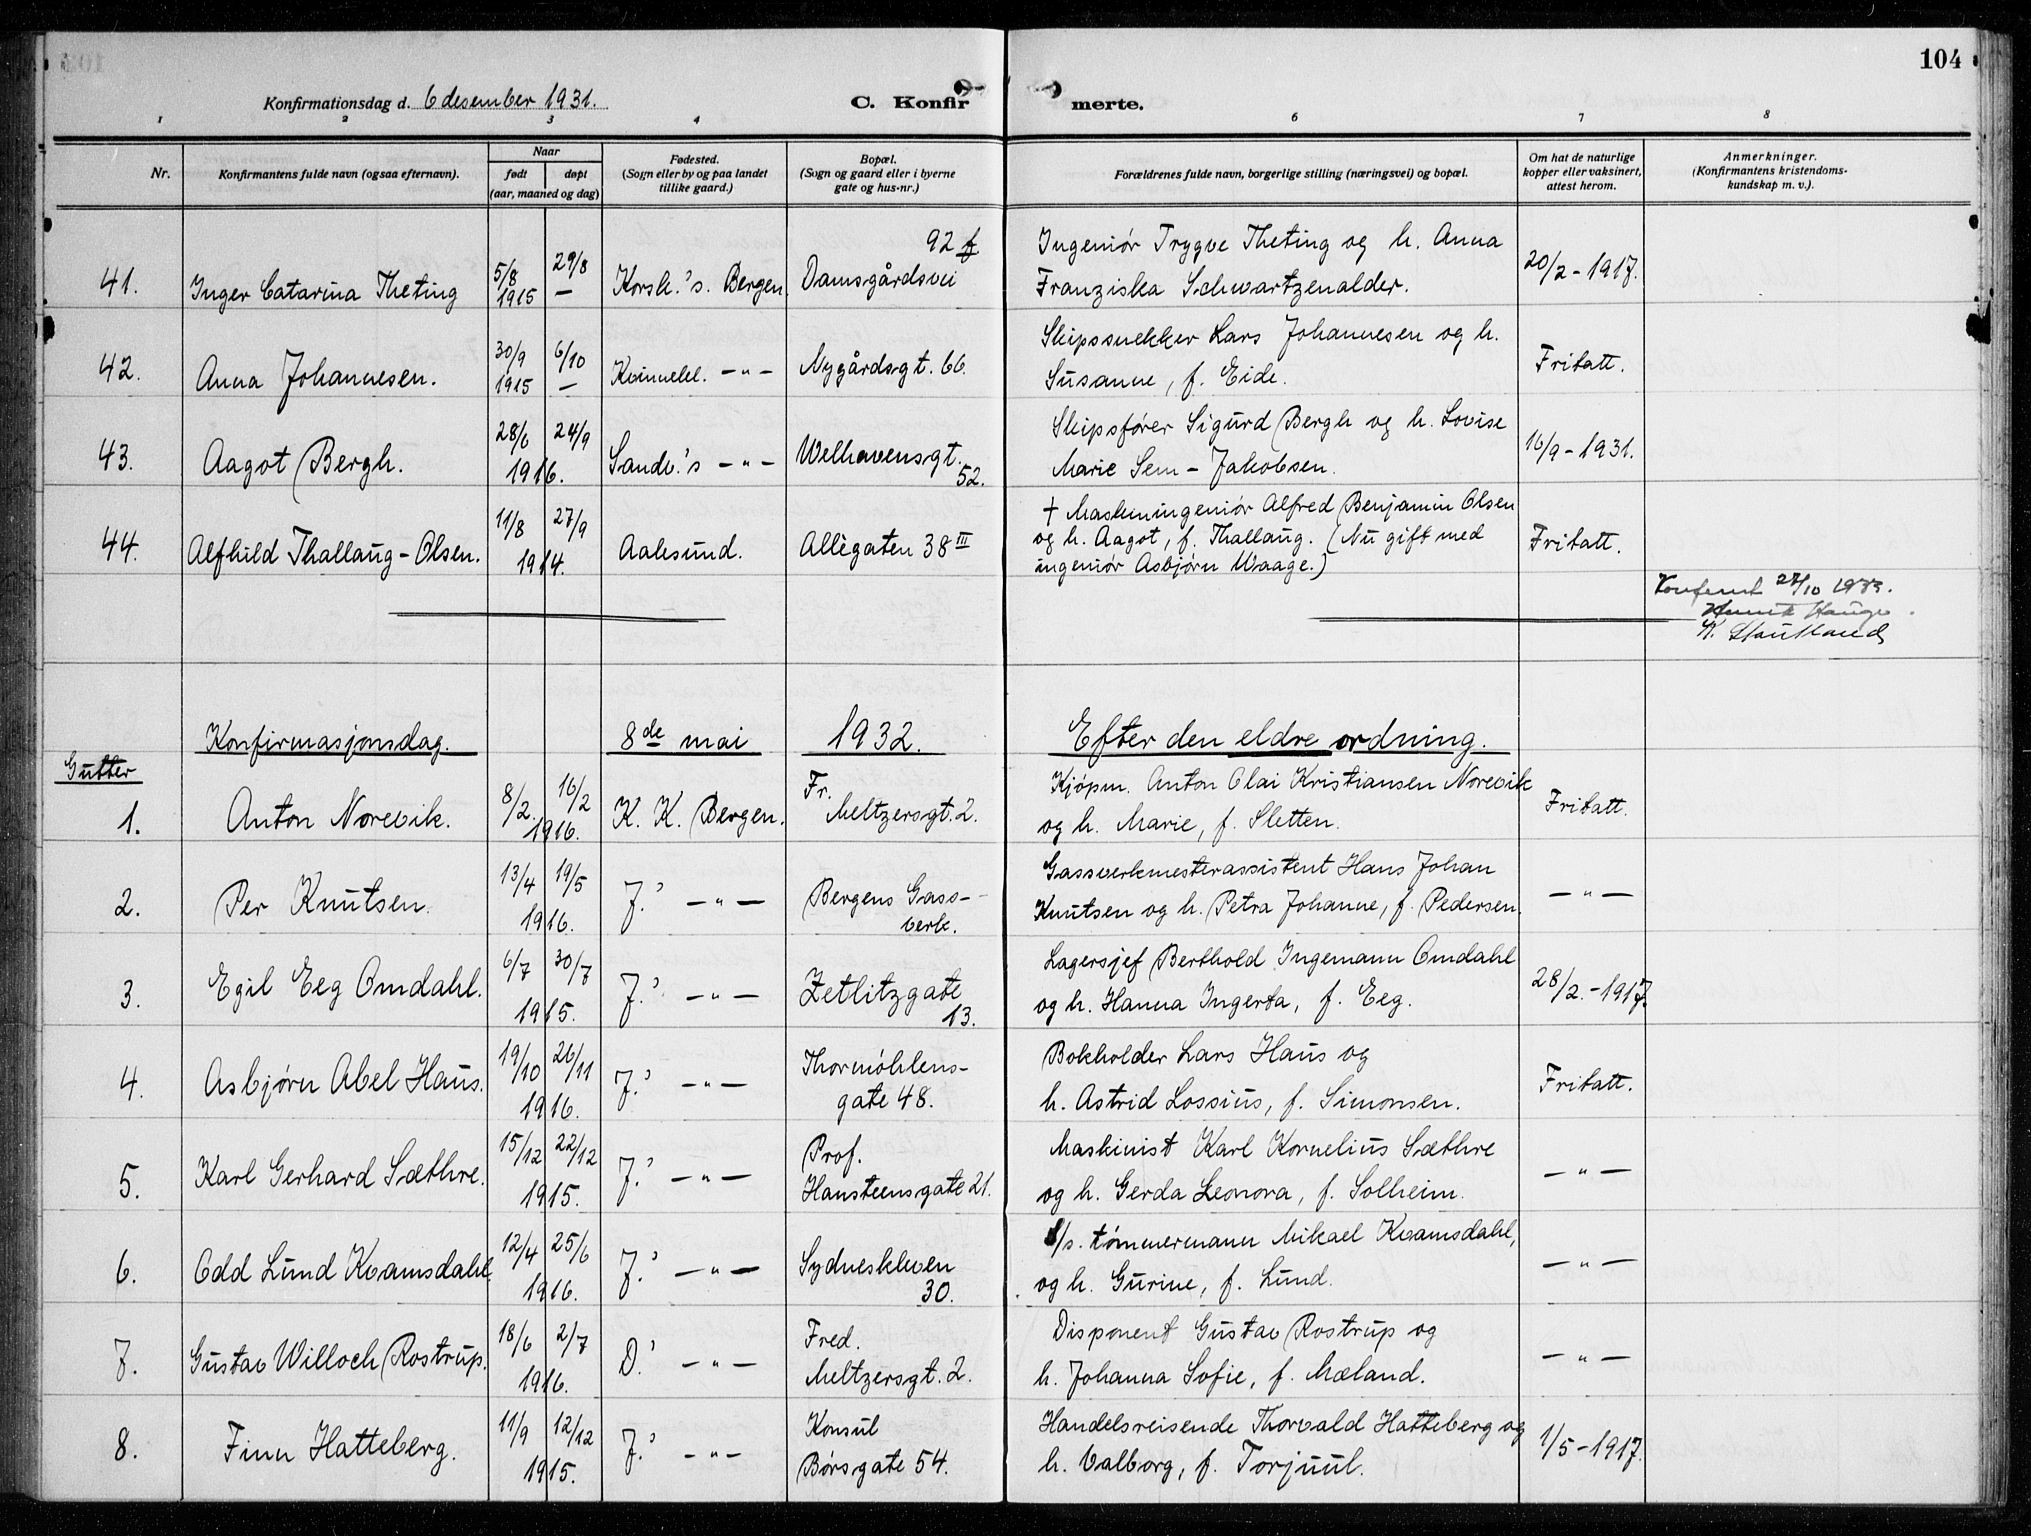 104
Konfirmationsdag d. 6 desember 1931.
C. Konfir
merte.
1 2 3 4 6 7 8
Nr.
Konfirmantens fulde navn (ogsaa efternavn).
Naar
født døpt
(aar, maaned og dag)
Fødested.
(Sogn eller by og paa landet
tillike gaard.)
Bopæl.
(Sogn og gaard eller i byerne
gate og hus-nr.)
Forældrenes fulde navn, borgerlige stilling (næringsvei) og bopæl.
Om hat de naturlige
kopper eller vaksinert,
attest herom.
Anmerkninger.
(Konfirmantens kristendoms-
kundskap m. v.).
41. Inger Catarina Theting 5/8 1915 29/8 — Korsk.'s. Bergen. 92 f Damsgårdsvei
Ingeniør Trygve Theting og h. Anna
Franziska Schwartzenalder.
20/2 - 1917.
42. Anna Johannesen. 30/9 1915 6/10 — Kvinnekl. — " — Nygårdsgt. 66.
Skipssnekker Lars Johannesen og h.
Susanne, f. Eide.
Fritatt.
43. Aagot Bergh. 28/6 24/9 1916. Sandv.'s — " — Welhavensgt. 52.
Skipsfører Sigurd Bergh og h. Lovise
Marie Sem - Jakobsen.
16/9 - 1931.
44. Alfhild Thallaug - Olsen. 11/8 27/9 1914. Aalesund. Allégaten 38 III
† Maskiningeniør Alfred Benjamin Olsen
og h. Aagot, f. Thallaug. (Nu gift med
ingeniør Asbjørn Waage.)
Fritatt.
27/10 1933.
Konfirmasjonsdag. 8de mai 1932. Efter den eldre ordning.
Gutter
1. Anton Norevik. 8/2. 16/2 1916. K. K. Bergen. Fr. Meltzersgt. 2.
Kjøpm. Anton Olai Kristiansen Norevik
og h. Marie, f. Sletten.
Fritatt.
2. Per Knutsen. 13/4 19/5 1916. J.' — " — Bergens Gass-
verk.
Gassverkmesterassistent Hans Johan
Knutsen og h. Petra Johanne, f. Pedersen.
— " —
3. Egil Eeg Omdahl. 6/7 30/7 1915. J.' — " — Zetlitzgate
13.
Lagersjef Berthold Ingemann Omdahl
og h. Hanna Ingerta, f. Eeg.
28/2. - 1917.
4. Asbjørn Abel Haus. 19/10 26/11 1916. J.' — " — Thormöhlens-
gate 48.
Bokholder Lars Haus og
h. Astrid Lossius, f. Simonsen.
Fritatt.
5. Karl Gerhard Sæthre. 15/12 22/12 1915. J.' — " — Prof.
Hansteensgate 21.
Maskinist Karl Kornelius Sæthre
og h. Gerda Leonora, f. Solheim.
— " —
6. Odd Lund Kvamsdahl. 12/4 25/6 1916. J.' — " — Sydneskleven
30.
S/s. tømmermann Mikael Kvamsdahl,
og h. Gurine, f. Lund.
— " —
7. Gustav Willoch Rostrup. 18/6 2/7 1916. D.' — " — Fred.
Meltzersgt. 2.
Disponent Gustav Rostrup og
h. Johanna Sofie, f. Mæland.
— " —
8. Finn Hatteberg. 11/9 12/12 1915. J.' — " — Konsul
Børsgate 54.
Handelsreisende Thorvald Hatteberg og
h. Valborg, f. Torjuul.
1/5 - 1917.